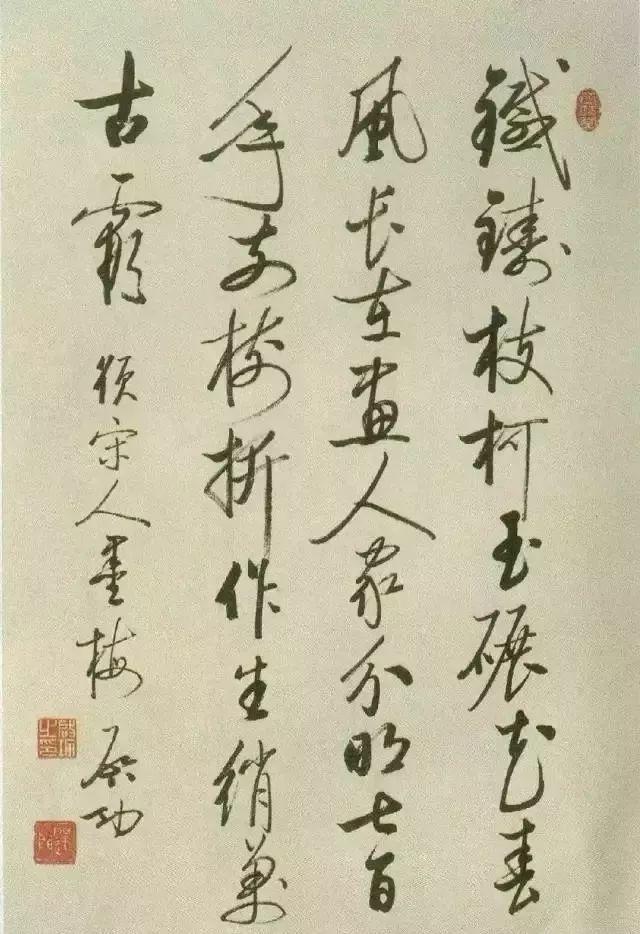 鐵鑄枝柯玉碾花春
風长在畫人家分明七百
年前樹折作生綃萬
古霞 題宋人墨梅 启功